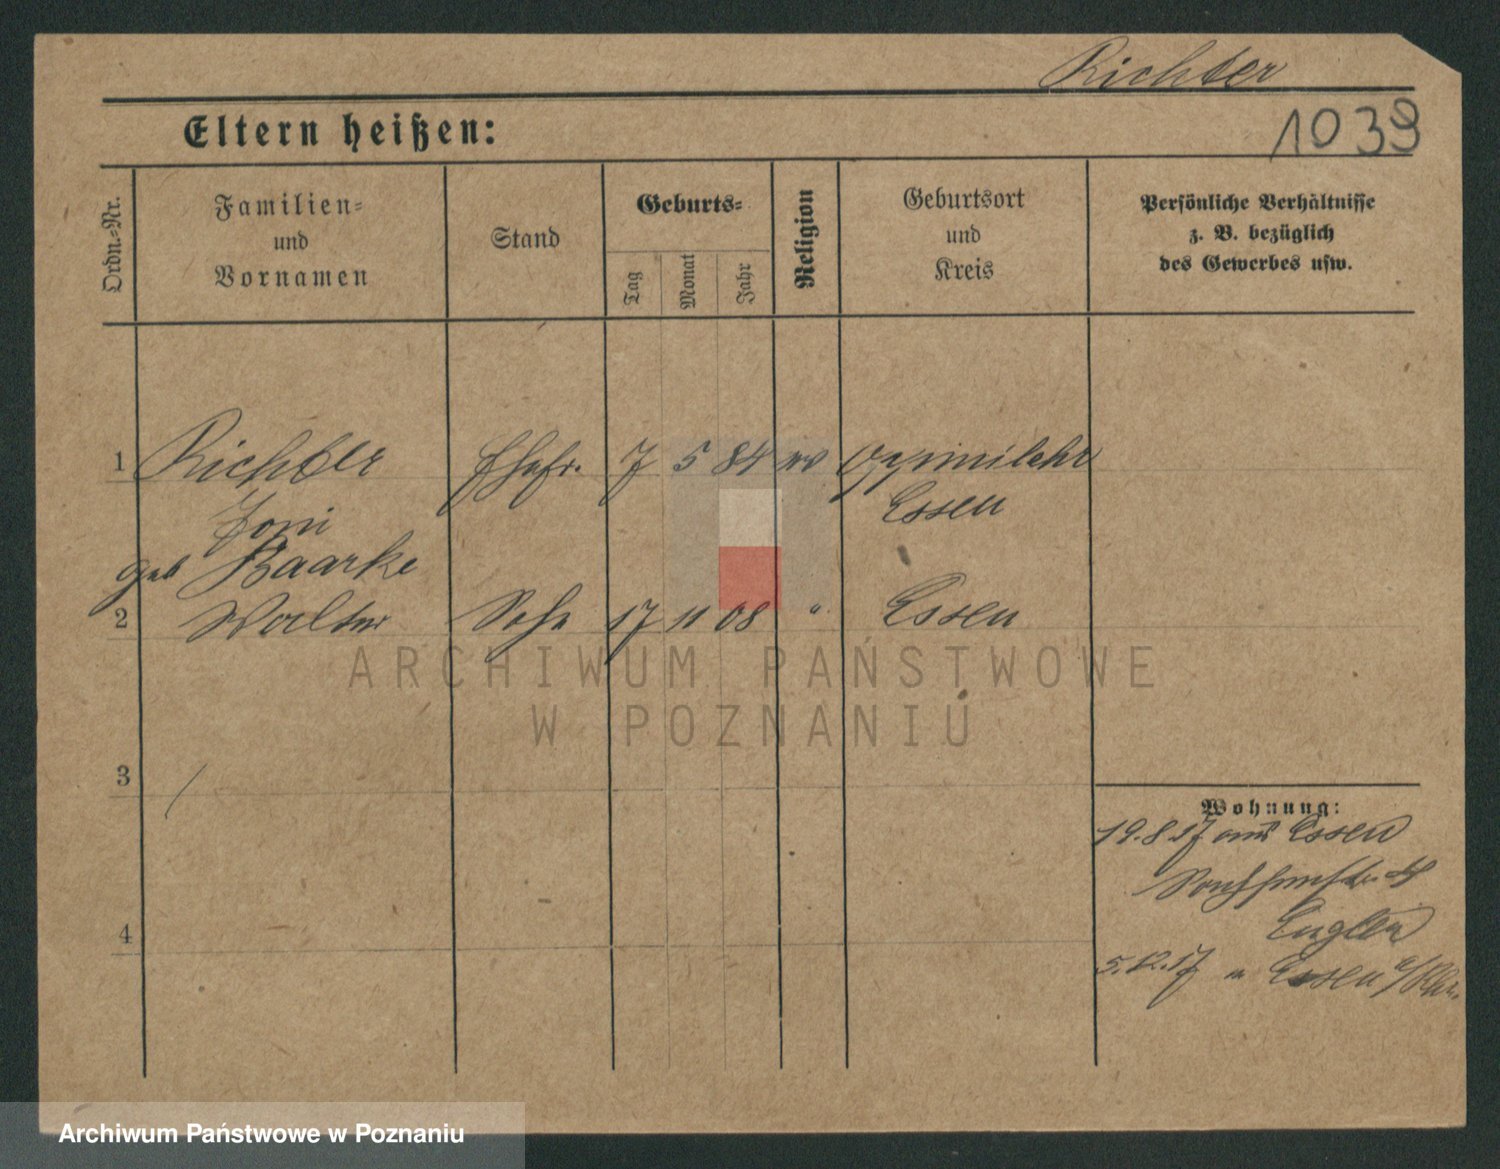 Richter
1039
Eltern heißen:
Ordn.=Nr.
Familien=
und
Vornamen
Stand
Geburts=
Tag
Monat
Jahr
Religion
Geburtsort
und
Kreis
Persönliche Verhältnisse
z. B. bezüglich
des Gewerbes usw.
1 Richter Ehefr. 7 5 84 ev
Essen
Toni
geb Baarke
2 Walter Sohn 17 11 08 " Essen
3
4
Wohnung:
19.8.17 aus Essen
Engler
5.12.17 n Essen a/Rhr.
ARCHIWUM PAŃSTWOWE
W POZNANIU
Archiwum Państwowe w Poznaniu